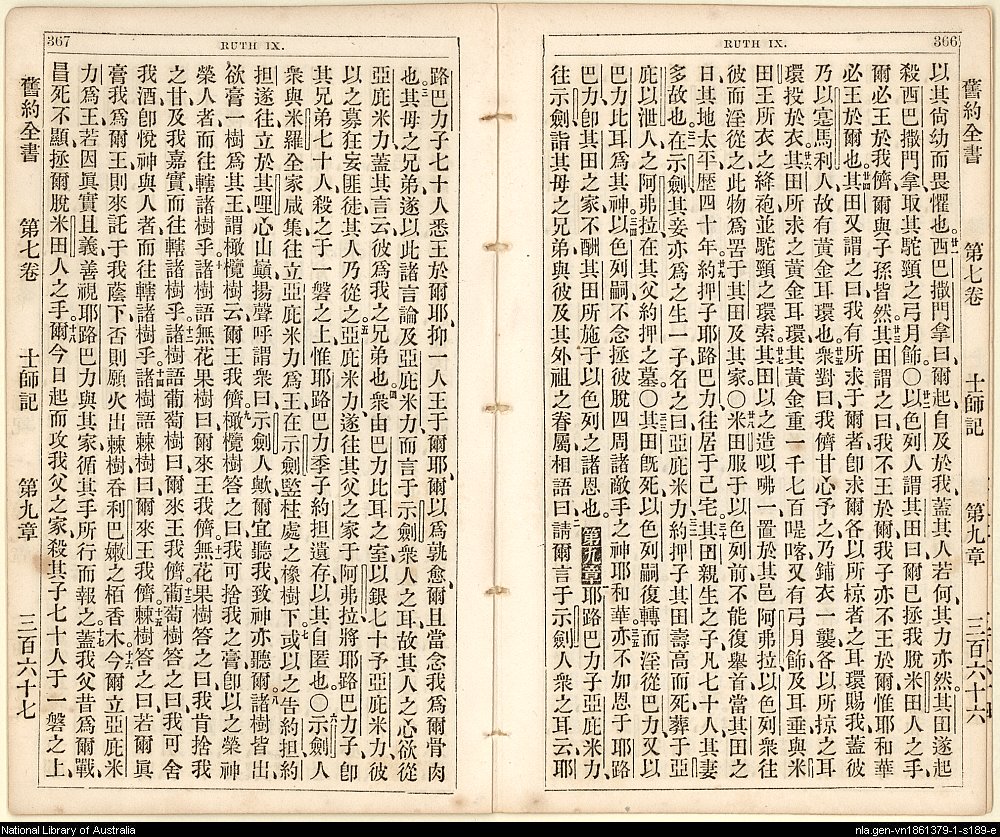 366
RUTH IX.
舊約全書 第七卷 士師記 第九章 三百六十六
以其尙幼而畏懼也西巴撒門拿曰爾起自及於我蓋其人若何其力亦然其田遂起
殺西巴撒門拿取其駝頸之弓月飾〇以色列人謂其田曰爾巳拯我脫米田人之手
爾必王於我儕爾與子孫皆然其田謂之曰我不王於爾我子亦不王於爾惟耶和華
必王於爾也其田又謂之曰我有所求于爾者卽求爾各以所椋者之耳環賜我蓋彼
乃以塞馬利人故有黃金耳環也衆對曰我儕甘心予之乃鋪衣一襲各以所掠之耳
環投於衣其田所求之黃金耳環其黃金重一千七百喀又有弓月飾及耳垂與米
田王所衣之絳袍並駝頸之環索其田以之造咈一置於其邑阿弗拉以色列衆往
彼而淫從之此物爲罟于其田及其家〇米田服于以色列前不能復舉首當其田之
日其地太平歷四十年約押子耶路巴力往居于己宅其田親生之子凡七十人其妻
多故也在示劍其妾亦爲之生一子名之曰亞庇米力約押子其田壽高而死葬于亞
庇以泄人之阿弗拉在其父約押之墓〇其田旣死以色列嗣復轉而淫從巴力又以
巴力比耳爲其神以色列嗣不念拯彼脫四周諸敵手之神耶和華亦不加恩于耶路
巴力卽其田之家不酬其田所施于以色列之諸恩也第九章耶路巴力子亞庇米力
往示劍詣其母之兄弟與彼及其外祖之眷屬相語曰請爾言于示劍人衆之耳云耶
367
RUTH IX.
路巴力子七十人悉王於爾耶抑一人王于爾耶爾以爲孰愈爾且當念我爲爾骨肉
也其母之兄弟遂以此諸言論及亞庇米力而言于示劍衆人之耳故其人之心欲從
亞庇米力蓋其言云彼爲我之兄弟也衆由巴力比耳之室以銀七十予亞庇米力彼
以之募狂妄匪徒其人乃從之亞庇米力遂往其父之家于阿弗拉將耶路巴力子卽
其兄弟七十人殺之于一磐之上惟耶路巴力季子約担遺存以其自匿也〇示劍人
衆與米羅全家咸集往立亞庇米力爲王在示劍監柱處之橡樹下或以之告約担約
担遂往立於其哩心山巔揚聲呼謂衆曰示劍人歟爾宜聽我致神亦聽爾諸樹皆出
欲膏一樹爲其王謂橄欖樹云爾王我儕橄欖樹答之曰我可捨我之膏卽以之榮神
榮人者而往轄諸樹乎諸樹語無花果樹曰爾來王我儕無花果樹答之曰我肯捨我
之甘及我嘉實而往轄諸樹乎諸樹語葡萄樹曰爾來王我儕葡萄樹答之曰我可舍
我酒卽悅神與人者而往轄諸樹乎諸樹語棘樹曰爾來王我儕棘樹答之曰若爾眞
膏我爲爾王則來託于我蔭下否則願火出棘樹吞利巴嫩之栢香木今爾立亞庇米
力爲王若因眞實且義善視耶路巴力與其家循其手所行而報之蓋我父昔爲爾戰
冒死不顯拯爾脫米田人之手爾今日起而攻我父之家殺其子七十人于一磐之上
舊約全書 第七卷 士師記 第九章 三百六十七
National Library of Australia
nla.gen-vn1861379-1-s189-e